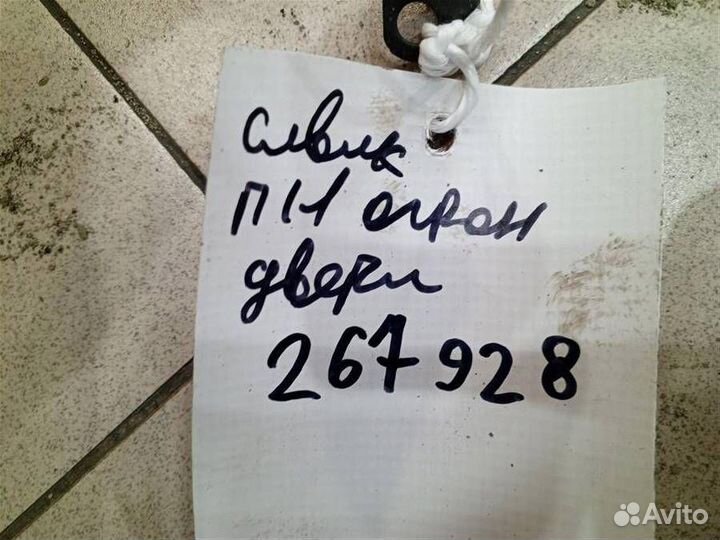 сивик
ПН огран
двери
267928
Avito